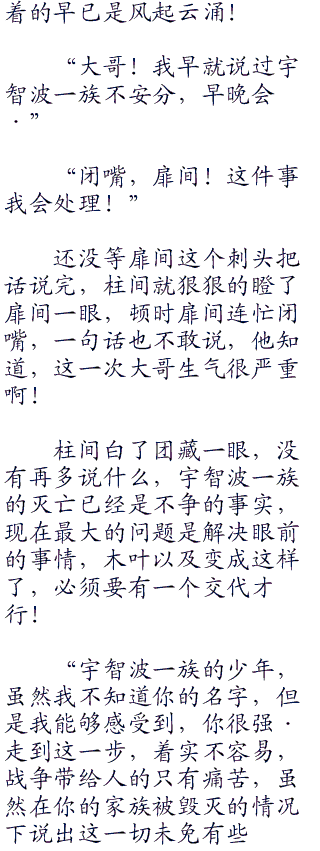 着的早已是风起云涌！
“大哥！我早就说过宇
智波一族不安分，早晚会
·”
“闭嘴，扉间！这件事
我会处理！”
还没等扉间这个刺头把
话说完，柱间就狠狠的瞪了
扉间一眼，顿时扉间连忙闭
嘴，一句话也不敢说，他知
道，这一次大哥生气很严重
啊！
柱间白了团藏一眼，没
有再多说什么，宇智波一族
的灭亡已经是不争的事实，
现在最大的问题是解决眼前
的事情，木叶以及变成这样
了，必须要有一个交代才
行！
“宇智波一族的少年，
虽然我不知道你的名字，但
是我能够感受到，你很强·
走到这一步，着实不容易，
战争带给人的只有痛苦，虽
然在你的家族被毁灭的情况
下说出这一切未免有些